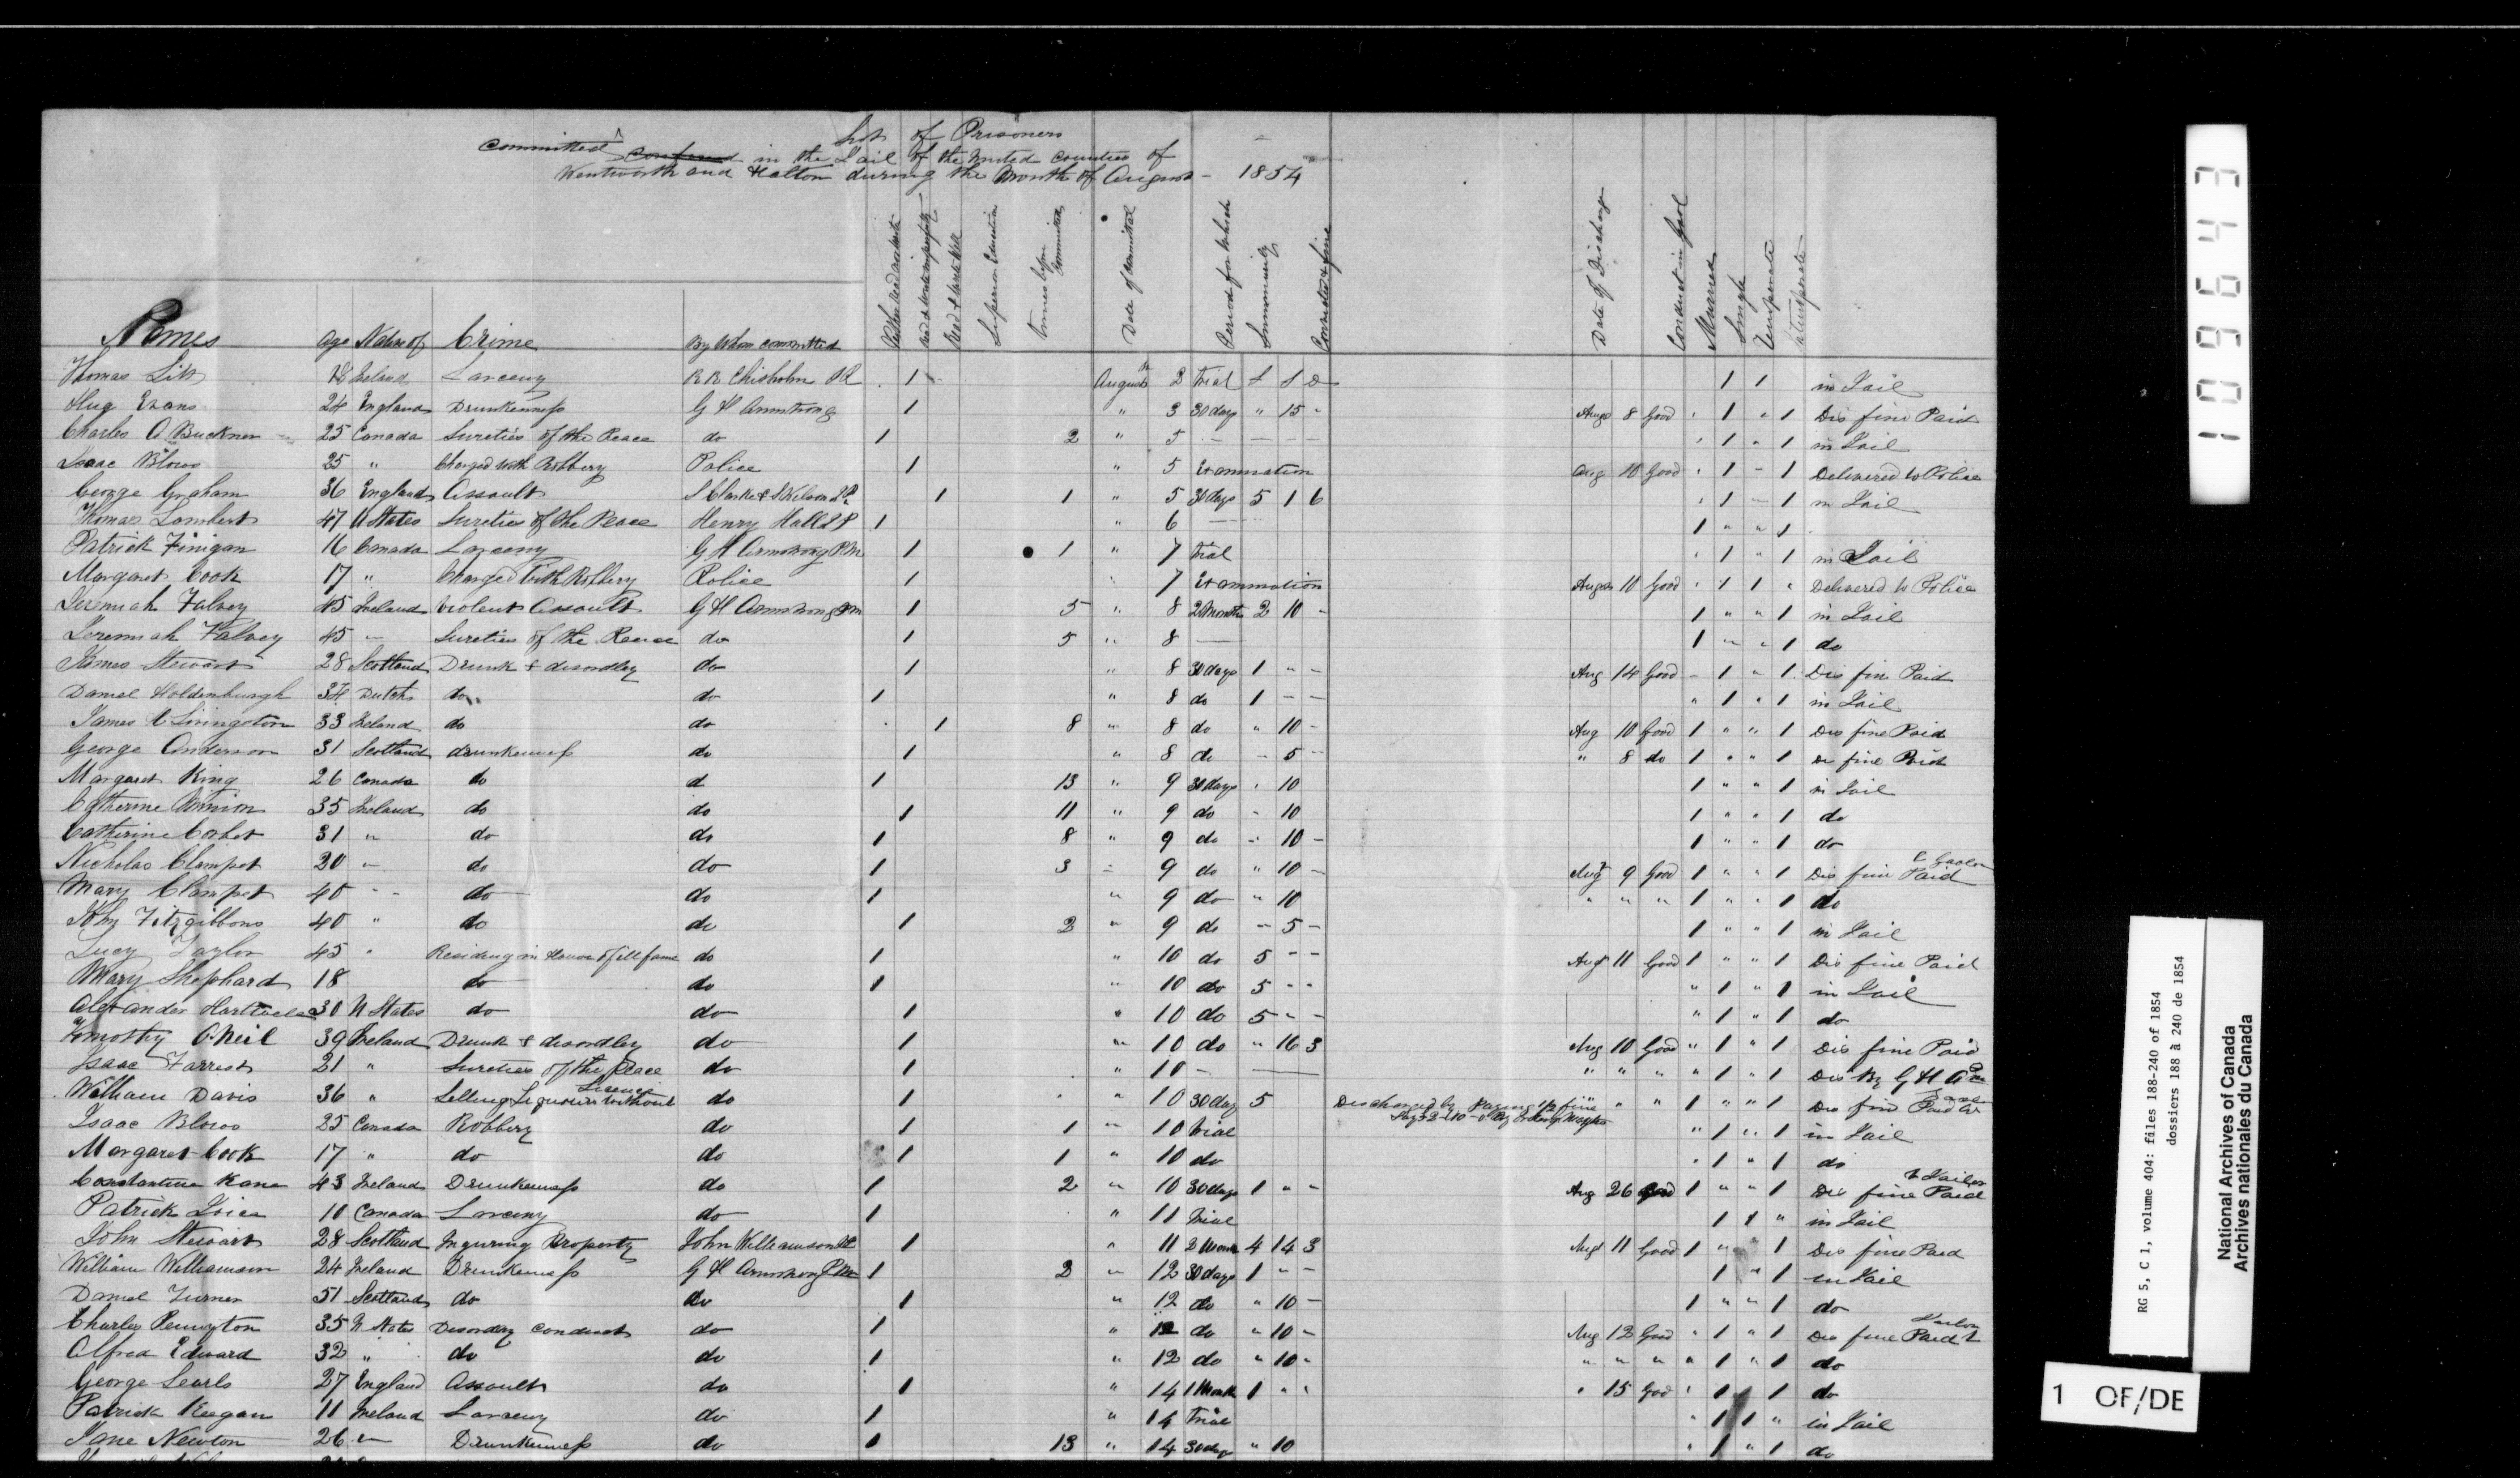 List of Prisoners
Committed ^ confined in the Jail of the United Counties of
Wentworth and Halton during the Month of August - 1854
Names Age Native of Crime By Whom committed Neither Read and write Read & write imperfectly Read & write Well Superior Education Times before Committed Date of Committal Period for Which Summarily Convicted & fine Date of Discharge Conduct in Gaol Married Single Temperate Intemperate
Thomas 18 Ireland Larceny R K Chisholm 1 August 2 trial £ S D 1 1 in Jail
Hug Evans 24 England Drunkenness G H Armstrong 1 " 3 30 days " 15 - Aug 8 Good " 1 " 1 Dis fine Paid
Charles A Buckner 25 Canada Sureties of the Peace do 1 2 " 5 - - - - " 1 " 1 in Jail
Isaac Blows 25 " Charged with Robbery Police 1 " 5 Examination Aug 10 Good " 1 - 1 Delivered to Police
George Graham 36 England Assault 1 1 " 5 30 days 5 1 6 " 1 - 1 in Jail
Thomas Lambert 47 U States Sureties of the Peace Henry Hall 1 " 6 - 1 " " 1
Patrick Finigan 16 Canada Larceny G H Armstrong P.M 1 1 " 7 trial " 1 " 1 in Jail
Margaret Cook 17 " Charged With Robbery Police 1 " 7 Examination Aug 10 Good " 1 1 " Delivered to Police
Jeremiah Falvey 45 Ireland Violent Assault G H Armstrong PM 1 5 " 8 2 Months 2 10 - 1 " " 1 in Jail
Jeremiah Falvey 45 " Sureties of the Peace do 1 5 " 8 - 1 " " 1 do
James Stewart 28 Scotland Drunk & disordley do 1 " 8 30 days 1 " - Aug 14 Good - 1 " 1 Dis fine Paid
Daniel Holdenburgh 34 Dutch do do 1 " 8 do 1 - - " 1 " 1 in Jail
James Livingston 33 Ireland do do 1 8 " 8 do " 10 - Aug 10 Good 1 " " 1 Dis fine Paid
George Anderson 31 Scotland drunkenness do 1 " 8 do - 5 - " 8 do 1 " " 1 Di fine Paid
Margaret King 26 Canada do d 1 13 " 9 30 days " 10 1 " " 1 in Jail
Catherine 35 Ireland do do 1 11 " 9 do " 10 1 " " 1 do
Catherine Corbet 31 " do do 1 8 " 9 do " 10 - 1 " " 1 do
Nicholas Clampet 20 " do do 1 3 " 9 do " 10 - Aug 9 Good 1 " " 1 Dis fine Paid
Mary Clampet 40 " do do 1 " 9 do " 10 " " " 1 " " 1 do
John Fitzgibbons 40 " do do 1 2 " 9 do - 5 - 1 " " 1 in Jail
Lucy Taylor 45 " Residing in House of ill fame do 1 " 10 do 5 - - Aug 11 Good 1 " " 1 Dis fine Paid
Mary Shephard 18 do do 1 " 10 do 5 - - " 1 " 1 in Jail
Alexander 30 U States do do 1 " 10 do 5 - - " 1 " 1 do
Timothy O.Neil 39 Ireland Drunk & disordley do 1 " 10 do " 16 3 Aug 10 Good " 1 " 1 Dis fine Paid
Isaac Farrest 21 " Sureties of the Peace do 1 " 10 - " " " " 1 " 1 Dis By G H A
William Davis 36 " Selling Liquour without Licence do 1 " 10 30 day 5 Discharged by Paying 1/2 fine " " " 1 " " 1 Dis fine Paid
Isaac Blows 25 Canada Robbery do 1 1 " 10 trial " 1 " 1 in Jail
Margaret Cook 17 " do do 1 1 " 10 do " 1 " 1 do
Constantine Kane 43 Ireland Drunkenness do 1 2 " 10 30 days 1 " " Aug 26 Good 1 " " 1 Dis fine Paid to Jailor
Patrick 10 Canada Larceny do 1 " 11 trial 1 1 " in Jail
John Stewart 28 Scotland Inguring Property John Williamson 1 " 11 2 4 14 3 Aug 11 Good 1 " 1 Dis fine Paid
William Williamson 24 Ireland Drunkenness G H Armstrong P.M 1 2 " 12 30 days 1 " - 1 " 1 in Jail
Daniel Turner 51 Scotland do do 1 " 12 do " 10 - 1 " " 1 do
Charles Penington 35 U States Disordley Conduct do 1 " 12 do " 10 - Aug 12 Good " 1 " 1 Dis fine Paid
Alfred Edward 32 " do do 1 " 12 do " 10 - " " " " 1 " 1 do
George Searls 27 England Assault do 1 " 14 1 Month 1 " " " 15 Good " 1 1 do
Patrick Keegan 11 Ireland Larceny do 1 " 14 trial " 1 1 " in Jail
Jane Newton 26 " Drunkenness do 1 13 " 14 30 days " 10 " 1 " 1 do
109643
RG 5, C 1, volume 404: files 188-240 of 1854
dossiers 188 à 240 de 1854
National Archives of Canada
Archives nationales du Canada
1 OF/DE